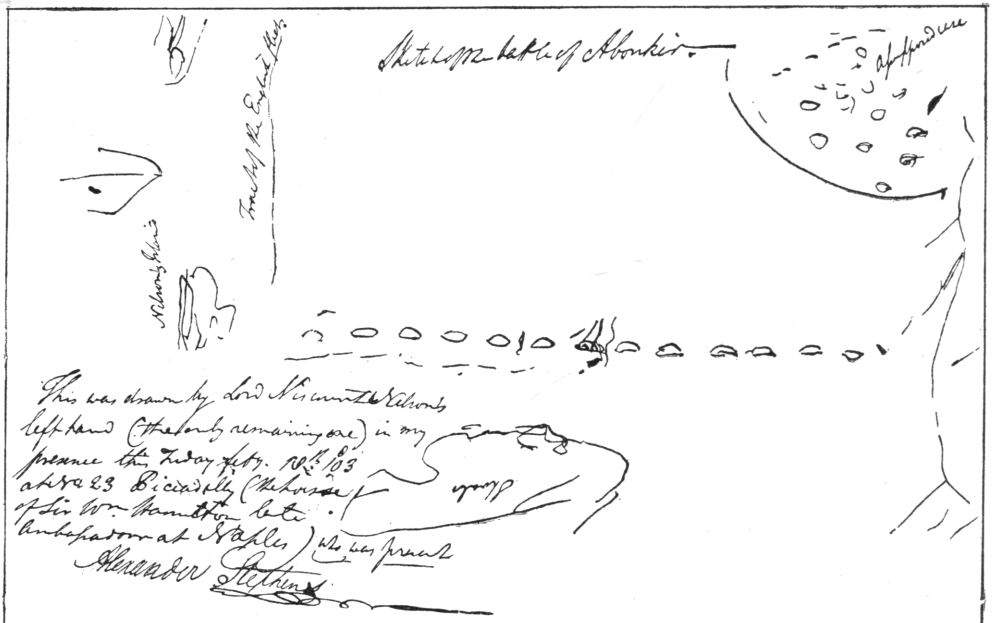 Sketch of the battle of Aboukir.
Track of the English fleet
Nelson's
This was drawn by Lord Viscount Nelson's
left hand (the only remaining one) in my
presence this Friday feby. 18th /03
at No 23 Piccadilly (the house
of Sir Wm Hamilton late
Ambassador at Naples) who was present
Alexander Stephens
Shoals